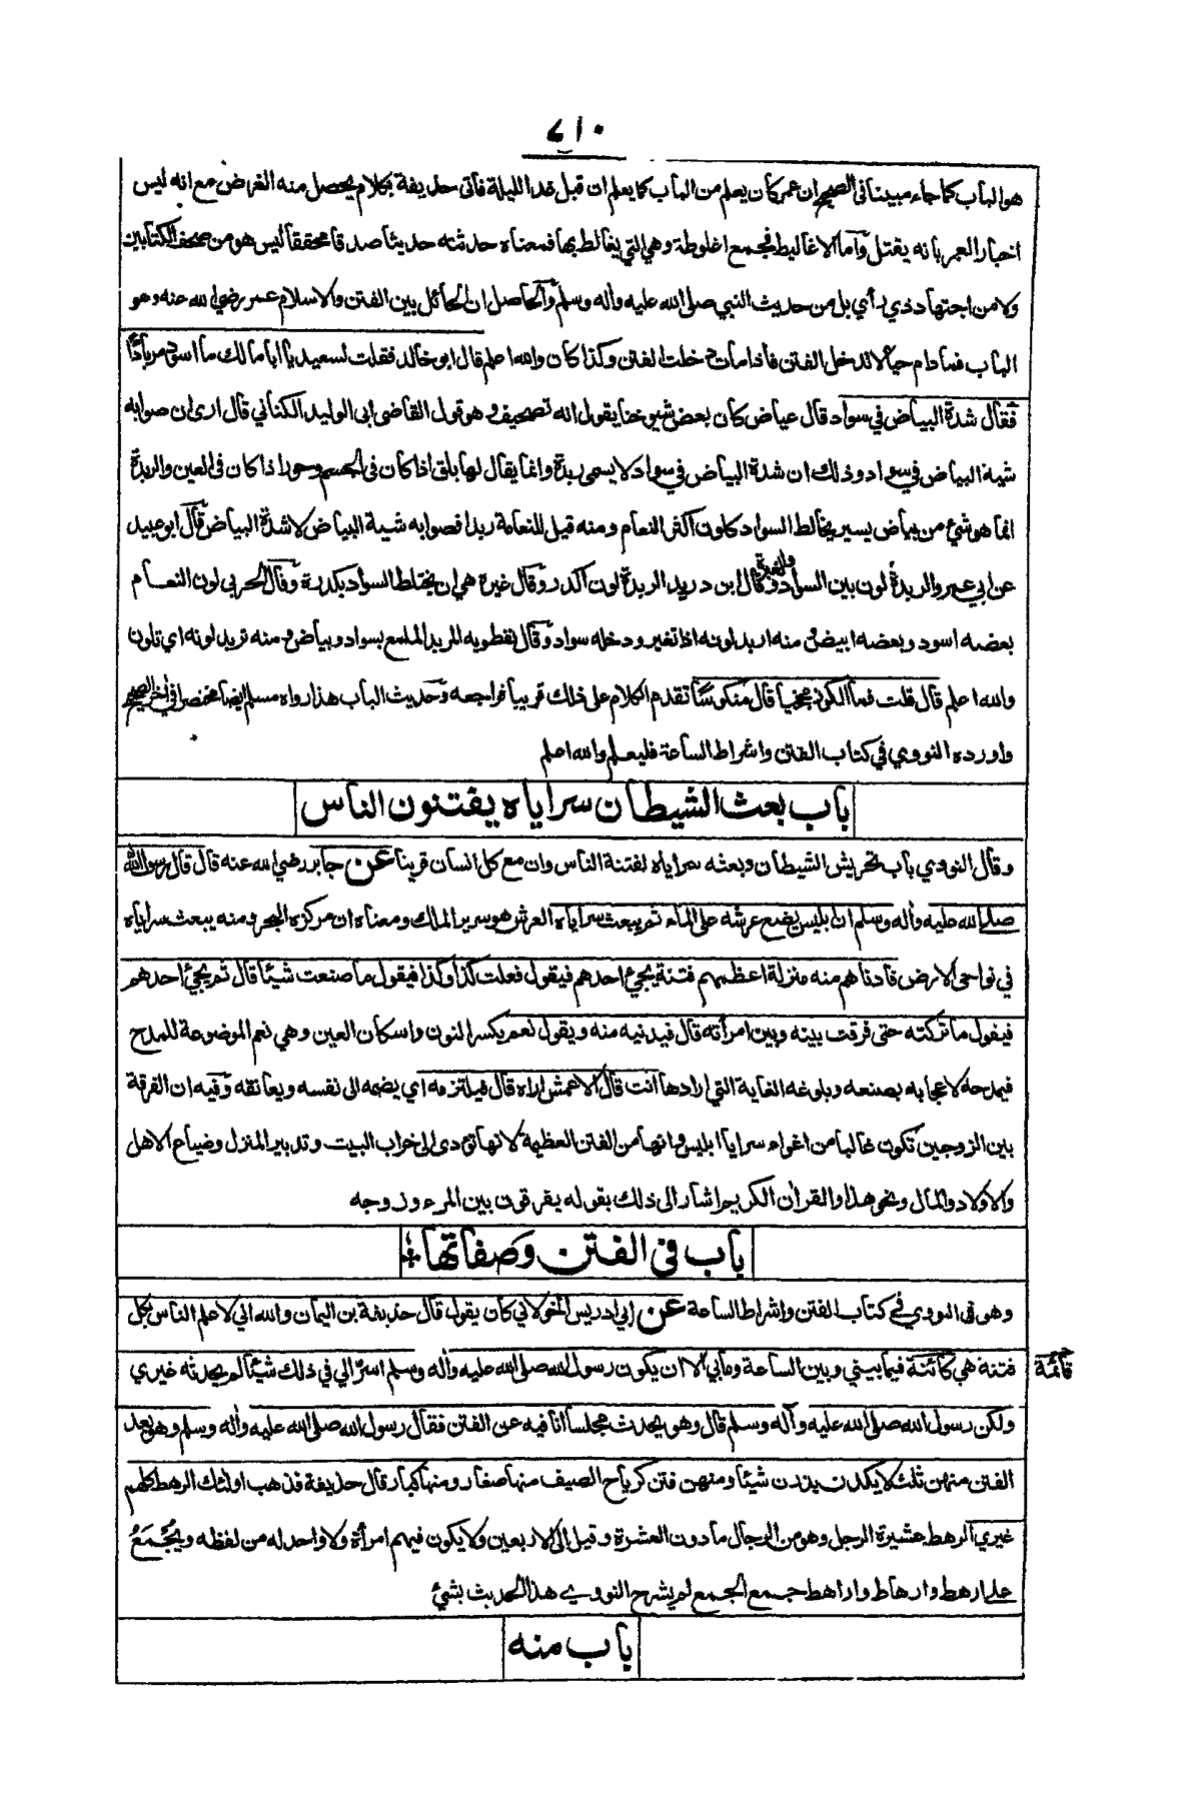 ٧١٠
هو الباب كما جاء مبينا في الصحيح ان عمر كان يعلم من الباب كما يعلم ان قبل غد الليلة فأتى حذيفة بكلام يحصل منه الغرض مع انه ليس
اخبارا لعمر بأنه يقتل وأما الاغاليط فجمع اغلوطة وهي التي يغالط بها فمعناه حدثته حديثا صدقا محققا ليس هو من صحف الكتابيين
ولا من اجتهاد ذي رأي بل من حديث النبي صلى الله عليه وأله وسلم والحاصل ان الحائل بين الفتن والاسلام عمر رضي الله عنه وهو
الباب فما دام حيا لا تدخل الفتن فاذا مات دخلت الفتن وكذا كان والله اعلم قال ابو خالد فقلت لسعيد يا ابا مالك ما اسود مربادًّا
فقال شدة البياض في سواد قال عياض كان بعض شيوخنا يقول انه تصحيف وهو قول القاضي ابي الوليد الكناني قال ارى ان صوابه
شبه البياض في سواد وذلك ان شدة البياض في سواد لا يسمى ربدة وانما يقال لها بلق اذا كان في الجسم وحورا اذا كان في العين والربدة
انما هو شئ من بياض يسير يخالط السواد كلون اكثر النعام ومنه قيل للنعامة ربدا فصوابه شبه البياض لا شدة البياض قال ابو عبيد
عن ابي عمرو والربدة لون بين السواد والغبرة وقال ابن دريد الربدة لون اكدر وقال غيره هي ان يختلط السواد بكدرة وقال الحربي لون النعام
بعضه اسود وبعضه ابيض ومنه اربد لونه اذا تغير ودخله سواد وقال نفطويه المربد الملمع بسواد وبياض ومنه تربد لونه اي تلون
والله اعلم قال قلت فما الكوز مجخيا قال منكوسًا تقدم الكلام على ذلك قريبا فراجعه وحديث الباب هذا رواه مسلم ايضا مختصرا في
واورده النووي في كتاب الفتن واشراط الساعة فليعلم والله اعلم
باب بعث الشيطان سراياه يفتنون الناس
وقال النووي باب تحريش الشيطان وبعثه سراياه لفتنة الناس وان مع كل انسان قرينا عن جابر رضي الله عنه قال قال رسول الله
صلى الله عليه وأله وسلم ان ابليس يضع عرشه على الماء ثم يبعث سراياه العرش هو سرير الملك ومعناه ان مركزه البحر ومنه يبعث سراياه
في نواحي الارض فادناهم منه منزلة اعظمهم فتنة يجئ احدهم فيقول فعلت كذا وكذا فيقول ما صنعت شيئا قال ثم يجئ احدهم
فيقول ما تركته حتى فرقت بينه وبين امرأته قال فيدنيه منه ويقول نعم بكسر النون واسكان العين وهي نعم الموضوعة للمدح
فيمدحه لاعجابه بصنعه وبلوغه الغاية التي ارادها انت قال الاعمش اراه قال فيلتزمه اي يضمه الى نفسه ويعانقه وفيه ان الفرقة
بين الزوجين تكون غالبا من اغواء سرايا ابليس وانها من الفتن العظيمة لانها تؤدى الى خراب البيت وتدبير المنزل وضياع الاهل
والاولاد والمال ونحو هذا والقرأن الكريم اشار الى ذلك بقوله يفرقون بين المرء وزوجه
باب في الفتن وصفاتها
وهو في النووي في كتاب الفتن واشراط الساعة عن ابي ادريس الخولاني كان يقول قال حذيفة بن اليمان والله اني لاعلم الناس بكل
فتنة هي كائنة فيما بيني وبين الساعة وما بي الا ان يكون رسول الله صلى الله عليه وأله وسلم اسر الي في ذلك شيئا لم يحدثه غيري
ولكن رسول الله صلى الله عليه وأله وسلم قال وهو يحدث مجلسا انا فيه عن الفتن فقال رسول الله صلى الله عليه وأله وسلم وهو يعد
الفتن منهن ثلث لا يكدن يذرن شيئا ومنهن فتن كرياح الصيف منها صغار ومنها كبار قال حذيفة فذهب اولئك الرهط كلهم
غيري الرهط عشيرة الرجل وهو من الرجال ما دون العشرة وقيل الى الاربعين ولا يكون فيهم امرأة ولا واحد له من لفظه ويُجْمَعُ
على ارهط وارهاط واراهط جمع الجمع لم يشرح النووي هذا الحديث بشئ
باب منه